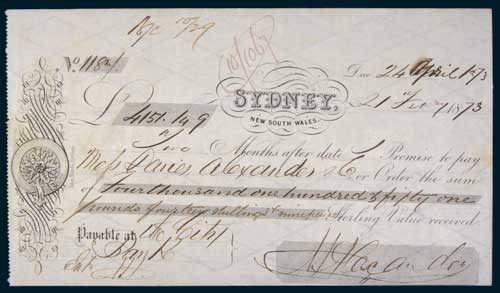 10/29
10/1063
No. 1184/.
Due 24 April 1873
£ 4151.14.9
SYDNEY,
NEW SOUTH WALES.
21 Feby 1873
Two Months after date I Promise to pay
Messrs Davies Alexander & Co or Order the sum
of four thousand one hundred & fifty one
pounds fourteen shillings & ninepence Sterling Value received.
Payable at the City
Bank